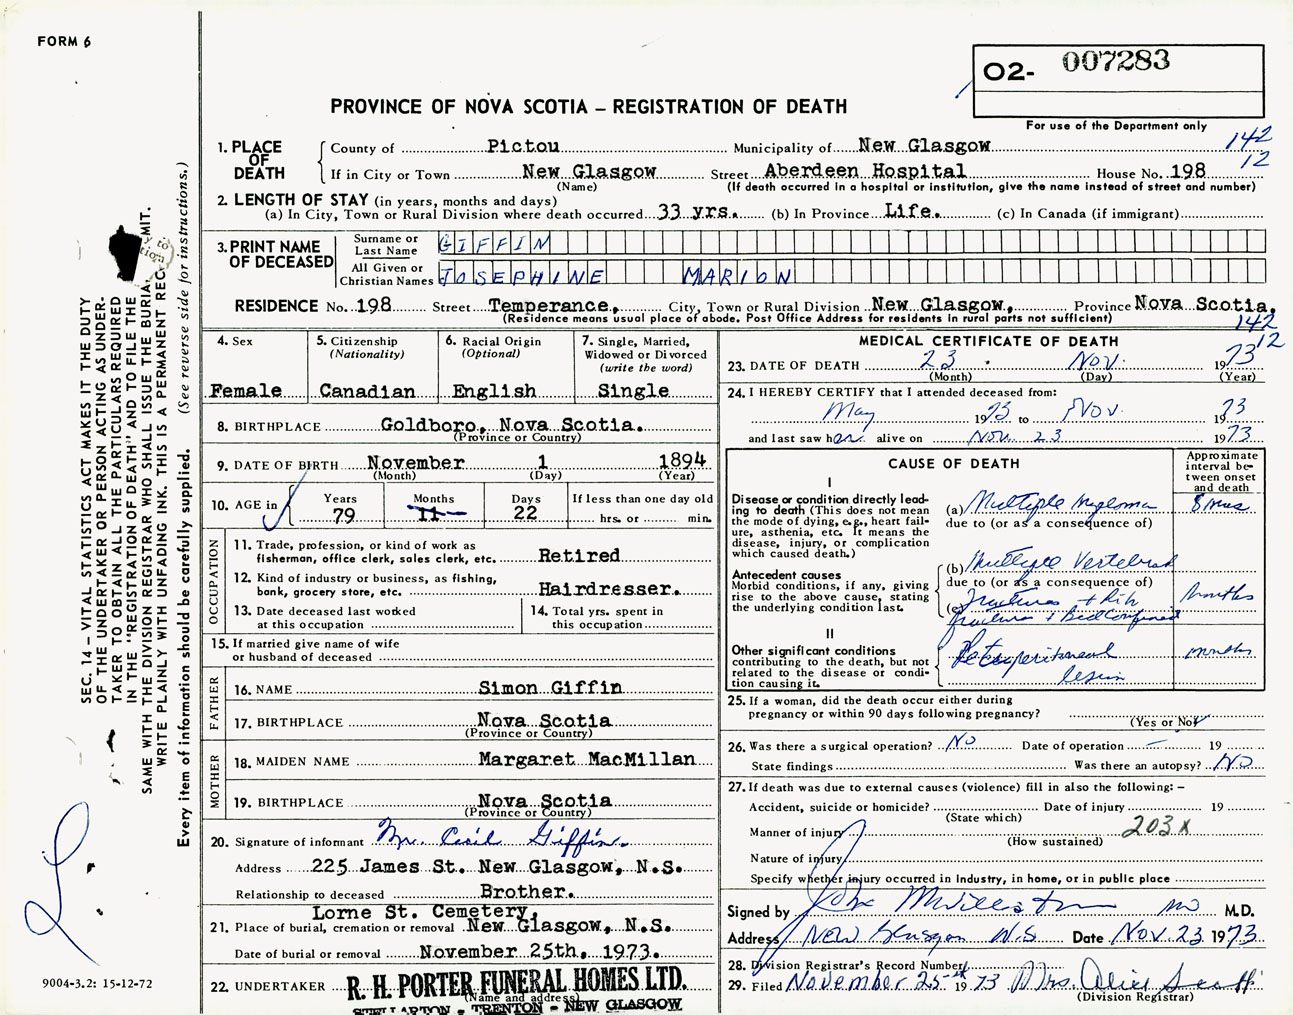 FORM 6
02- 007283
PROVINCE OF NOVA SCOTIA – REGISTRATION OF DEATH
For use of the Department only
142
12
1. PLACE OF DEATH
County of Pictou Municipality of New Glasgow
If in City or Town New Glasgow Street Aberdeen Hospital House No. 198
(Name) (If death occurred in a hospital or institution, give the name instead of street and number)
2. LENGTH OF STAY (in years, months and days)
(a) In City, Town or Rural Division where death occurred 33 yrs. (b) In Province Life. (c) In Canada (if immigrant)
3. PRINT NAME OF DECEASED
Surname or Last Name GIFFIN
All Given or Christian Names JOSEPHINE MARION
RESIDENCE No. 198 Street Temperance, City, Town or Rural Division New Glasgow, Province Nova Scotia.
(Residence means usual place of abode. Post Office Address for residents in rural parts not sufficient)
142
12
4. Sex
Female
5. Citizenship (Nationality)
Canadian
6. Racial Origin (Optional)
English
7. Single, Married, Widowed or Divorced (write the word)
Single
8. BIRTHPLACE Goldboro, Nova Scotia.
(Province or Country)
9. DATE OF BIRTH November 1 1894
(Month) (Day) (Year)
10. AGE in Years Months Days If less than one day old
79 11 22 hrs. or min.
OCCUPATION
11. Trade, profession, or kind of work as fisherman, office clerk, sales clerk, etc. Retired
12. Kind of industry or business, as fishing, bank, grocery store, etc. Hairdresser.
13. Date deceased last worked at this occupation
14. Total yrs. spent in this occupation
15. If married give name of wife or husband of deceased
FATHER
16. NAME Simon Giffin
17. BIRTHPLACE Nova Scotia
(Province or Country)
MOTHER
18. MAIDEN NAME Margaret MacMillan
19. BIRTHPLACE Nova Scotia
(Province or Country)
20. Signature of informant Mr. Cecil Giffin.
Address 225 James St. New Glasgow, N.S.
Relationship to deceased Brother.
Lorne St. Cemetery,
21. Place of burial, cremation or removal New Glasgow, N.S.
Date of burial or removal November 25th, 1973.
22. UNDERTAKER R. H. PORTER FUNERAL HOMES LTD.
(Name and address)
STELLARTON - TRENTON - NEW GLASGOW
MEDICAL CERTIFICATE OF DEATH
23. DATE OF DEATH 23 Nov. 1973
(Month) (Day) (Year)
24. I HEREBY CERTIFY that I attended deceased from:
May 1973 to Nov. 1973
and last saw her alive on Nov. 23 1973
CAUSE OF DEATH
Approximate interval between onset and death
I
Disease or condition directly leading to death (This does not mean the mode of dying, e.g., heart failure, asthenia, etc. It means the disease, injury, or complication which caused death.)
(a) Multiple Myeloma 8 mos
due to (or as a consequence of)
Antecedent causes
Morbid conditions, if any, giving rise to the above cause, stating the underlying condition last.
(b) Multiple Vertebral
due to (or as a consequence of)
(c) fractures + Rib months
fractures + Bed Confined
II
Other significant conditions contributing to the death, but not related to the disease or condition causing it.
Retroperitoneal months
lesion
25. If a woman, did the death occur either during pregnancy or within 90 days following pregnancy?
(Yes or No)
26. Was there a surgical operation? No Date of operation – 19
State findings Was there an autopsy? No
27. If death was due to external causes (violence) fill in also the following: –
Accident, suicide or homicide? Date of injury 19
(State which)
Manner of injury 203X
(How sustained)
Nature of injury
Specify whether injury occurred in industry, in home, or in public place
Signed by John M. Williston MD M.D.
Address New Glasgow N.S. Date Nov. 23 1973
28. Division Registrar's Record Number
29. Filed November 25th 1973 Mrs. Alice Scott
(Division Registrar)
SEC. 14 – VITAL STATISTICS ACT MAKES IT THE DUTY
OF THE UNDERTAKER OR PERSON ACTING AS UNDER-
TAKER TO OBTAIN ALL THE PARTICULARS REQUIRED
IN THE "REGISTRATION OF DEATH" AND TO FILE THE
SAME WITH THE DIVISION REGISTRAR WHO SHALL ISSUE THE BURIAL
WRITE PLAINLY WITH UNFADING INK. THIS IS A PERMANENT
Every item of information should be carefully supplied. (See reverse side for instructions.)
9004-3.2: 15-12-72